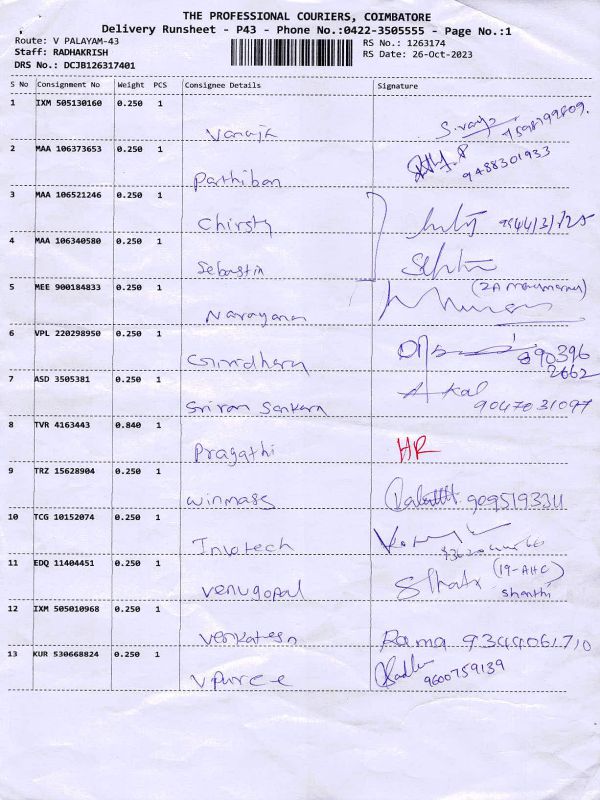 THE PROFESSIONAL COURIERS, COIMBATORE
Delivery Runsheet - P43 - Phone No.:0422-3505555 - Page No.:1
Route: V PALAYAM-43 RS No.: 1263174
Staff: RADHAKRISH RS Date: 26-Oct-2023
DRS No.: DCJB126317401
S No Consignment No Weight PCS Consignee Details Signature
1 IXM 505130160 0.250 1
Vanaja
2 MAA 106373653 0.250 1 9488301933
Parthiban
3 MAA 106521246 0.250 1
Chirsty
4 MAA 106340580 0.250 1
Sebastin
5 MEE 900184833 0.250 1
Narayanan
6 VPL 220298950 0.250 1
Giridharn 890396
2662
7 ASD 3505381 0.250 1 Akal
Sriram Sankarn 9047031097
8 TVR 4163443 0.840 1
Pragathi HR
9 TRZ 15628904 0.250 1
Winmass 9095193311
10 TCG 10152074 0.250 1
Invotech
11 EDQ 11404451 0.250 1 (19-AHC)
Venugopal Shanthi
12 IXM 505010968 0.250 1
Venkatesn Rama 9344061710
13 KUR 530668824 0.250 1
9600759139